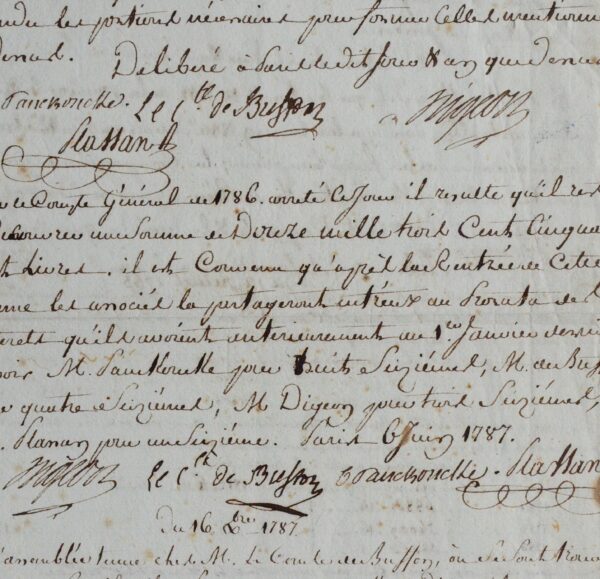 les portions nécessaires pour former celles mentionn
Deliberé à Paris lesdits jour & an que dessus
Panckoucke. Le Cte de Buffon Digeon
Plassan
le Compte Général de 1786. arreté ce Jour il resulte qu'il res
une Somme de Douze mille trois Cent Cinqua
Livres. il est Convenu qu'après la Rentrée de Cette
les associés la partageront entr'eux au Prorata de
qu'ils avoient anterieurement au 1er Janvier dernier
M. Panckoucke pour huit Seiziémes, M. de Buff
quatre Seiziémes, M Digeon pour trois Seiziémes,
. Plassan pour un Seiziéme. Paris 6 Juin 1787.
Digeon Le Cte de Buffon Panckoucke. Plassan
Du 16 bre 1787
assemblée tenue chez M. Le Comte de Buffon, où se sont trouv